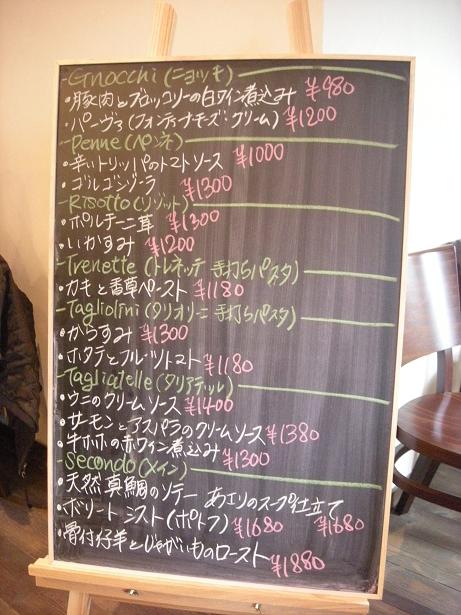 -Gnocchi (ニョッキ)
・豚肉とブロッコリーの白ワイン煮込み ¥980
・バーヴァ (フォンティーナチーズ・クリーム) ¥1200
-Penne (ペンネ)
・辛いトリッパのトマトソース ¥1000
・ゴルゴンゾーラ ¥1300
-Risotto (リゾット)
・ポルチーニ茸 ¥1300
・いかすみ ¥1200
-Trenette (トレネッテ 手打ちパスタ)
・カキと香草ペースト ¥1180
-Tagliolini (タリオリーニ 手打ちパスタ)
・からすみ ¥1300
・ホタテとフルーツトマト ¥1180
-Tagliatelle (タリアテッレ)
・ウニのクリームソース ¥1400
・サーモンとアスパラのクリームソース ¥1380
・牛ホホの赤ワイン煮込み ¥1300
-Secondo (メイン)
・天然真鯛のソテー あさりのスープ仕立て ¥1680
・ボリートミスト (ポトフ) ¥1680
・骨付仔羊とじゃがいものロースト ¥1880